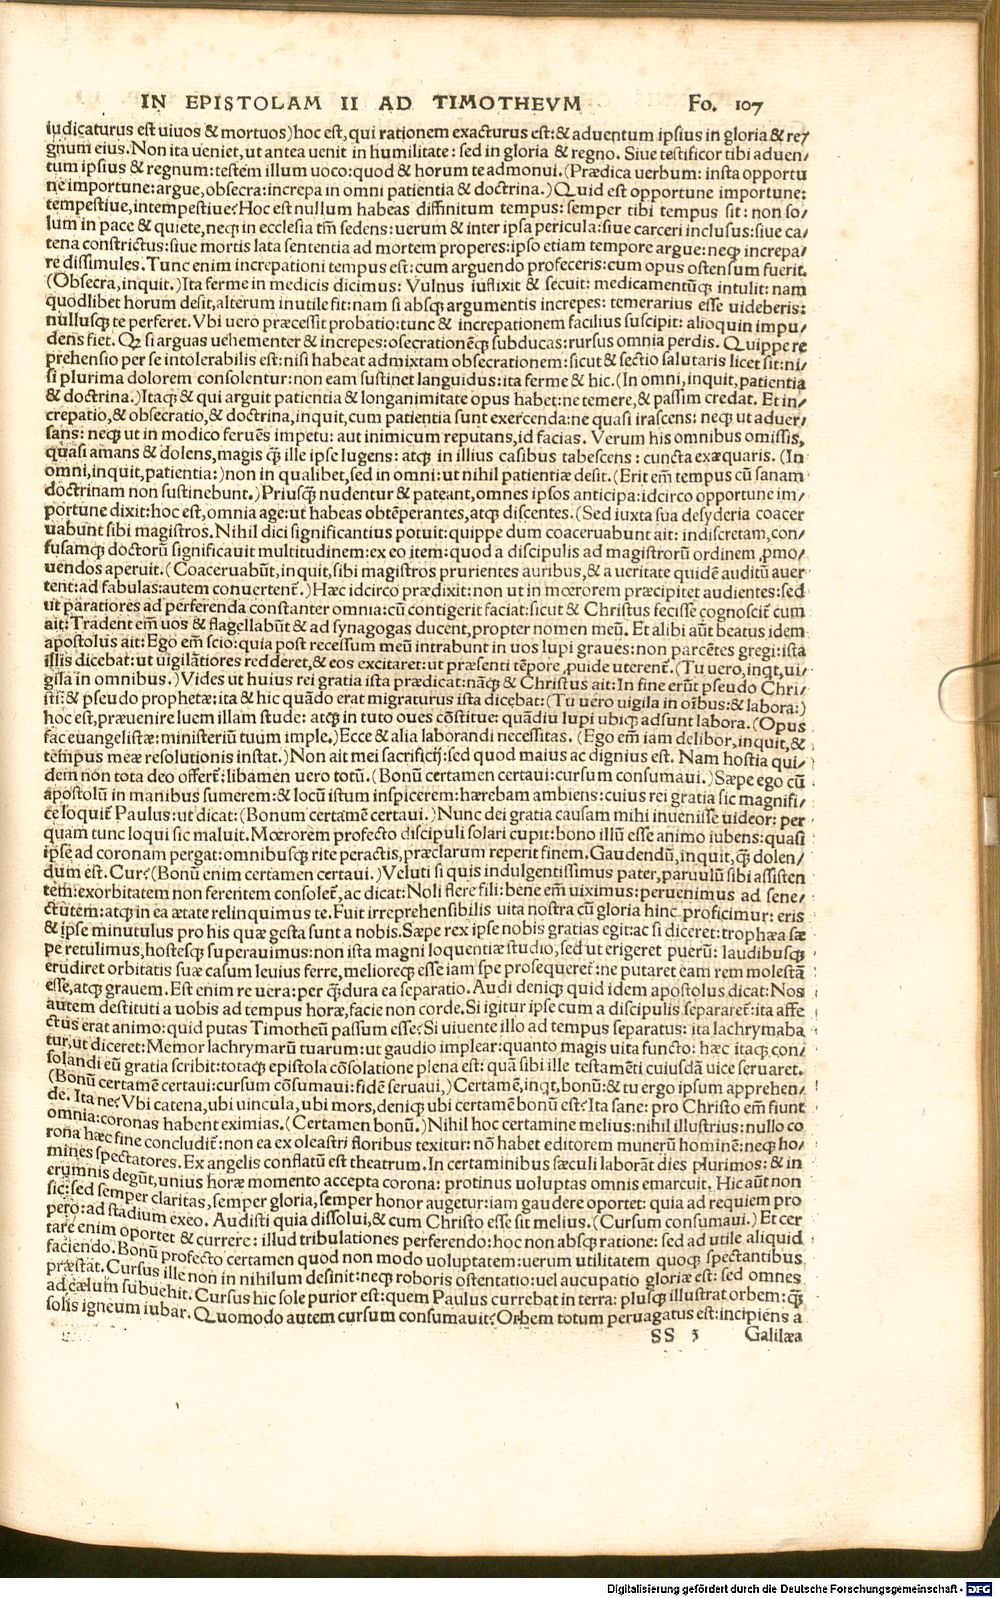 IN EPISTOLAM II AD TIMOTHEVM Fo. 107
iudicaturus est uiuos & mortuos)hoc est, qui rationem exacturus est:& aduentum ipsius in gloria & re/
gnum eius. Non ita ueniet, ut antea uenit in humilitate: sed in gloria & regno. Siue testificor tibi aduen/
tum ipsius & regnum: testem illum uoco: quod & horum te admonui. (Prædica uerbum: insta opportu
ne importune: argue, obsecra: increpa in omni patientia & doctrina.) Quid est opportune importune:
tempestiue, intempestiue? Hoc est nullum habeas diffinitum tempus: semper tibi tempus sit: non so/
lum in pace & quiete, neq; in ecclesia tm̄ sedens: uerum & inter ipsa pericula: siue carceri inclusus: siue ca/
tena constrictus: siue mortis lata sententia ad mortem properes: ipso etiam tempore argue: neq; increpa/
re dissimules. Tunc enim increpationi tempus est: cum arguendo profeceris: cum opus ostensum fuerit.
(Obsecra, inquit.) Ita ferme in medicis dicimus: Vulnus iuslixit & secuit: medicamentūq; intulit: nam
quodlibet horum desit, alterum inutile fit: nam si absq; argumentis increpes: temerarius esse uideberis:
nullusq; te perferet. Vbi uero præcessit probatio: tunc & increpationem facilius suscipit: alioquin impu/
dens fiet. Qꝫ si arguas uehementer & increpes: osecrationēq; subducas: rursus omnia perdis. Quippe re
prehensio per se intolerabilis est: nisi habeat admixtam obsecrationem: sicut & sectio salutaris licet sit: ni/
si plurima dolorem consolentur: non eam sustinet languidus: ita ferme & hic. (In omni, inquit, patientia
& doctrina.) Itaq; & qui arguit patientia & longanimitate opus habet: ne temere, & passim credat. Et in/
crepatio, & obsecratio, & doctrina, inquit, cum patientia sunt exercenda: ne quasi irascens: neq; ut aduer/
sans: neq; ut in modico feruēs impetu: aut inimicum reputans, id facias. Verum his omnibus omissis,
quasi amans & dolens, magis q̄ ille ipse lugens: atq; in illius casibus tabescens: cuncta exæquaris. (In
omni, inquit, patientia:) non in qualibet, sed in omni: ut nihil patientiæ desit. (Erit em̄ tempus cū sanam
doctrinam non sustinebunt.) Priusq̄ nudentur & pateant, omnes ipsos anticipa: idcirco opportune im/
portune dixit: hoc est, omnia age: ut habeas obtēperantes, atq; discentes. (Sed iuxta sua desyderia coacer
uabunt sibi magistros. Nihil dici significantius potuit: quippe dum coaceruabunt ait: indiscretam, con/
fusamq; doctorū significauit multitudinem: ex eo item: quod a discipulis ad magistrorū ordinem ꝓmo/
uendos aperuit. (Coaceruabūt, inquit, sibi magistros prurientes auribus, & a ueritate quidē auditū auer
tent: ad fabulas: autem conuertent̄.) Hæc idcirco prædixit: non ut in mœrorem præcipitet audientes: sed
ut paratiores ad perferenda constanter omnia: cū contigerit faciat: sicut & Christus fecisse cognoscit̄ cum
ait: Tradent em̄ uos & flagellabūt & ad synagogas ducent, propter nomen meū. Et alibi aūt beatus idem
apostolus ait: Ego em̄ scio: quia post recessum meū intrabunt in uos lupi graues: non parcētes gregi: ista
illis dicebat: ut uigilātiores redderet, & eos excitaret: ut præsenti tēpore ꝓuide uterent̄. (Tu uero, inqt, ui/
gila in omnibus.) Vides ut huius rei gratia ista prædicat: nāq; & Christus ait: In fine erūt pseudo Chri/
sti: & pseudo prophetæ: ita & hic quādo erat migraturus ista dicebat: (Tu uero uigila in oībus: & labora:)
hoc est, præuenire luem illam stude: atq; in tuto oues cōstitue: quādiu lupi ubiq; adsunt labora. (Opus
fac euangelistæ: ministeriū tuum imple.) Ecce & alia laborandi necessitas. (Ego em̄ iam delibor, inquit, &
tēmpus meæ resolutionis instat.) Non ait mei sacrificij: sed quod maius ac dignius est. Nam hostia qui/
dem non tota deo offert̄: libamen uero totū. (Bonū certamen certaui: cursum consumaui.) Sæpe ego cū
apostolū in manibus sumerem: & locū istum inspicerem: hærebam ambiens: cuius rei gratia sic magnifi/
ce loquit̄ Paulus: ut dicat: (Bonum certamē certaui.) Nunc dei gratia causam mihi inuenisse uideor: per
quam tunc loqui sic maluit. Mœrorem profecto discipuli solari cupit: bono illū esse animo iubens: quasi
ipse ad coronam pergat: omnibusq; rite peractis, præclarum reperit finem. Gaudendū, inquit, q̄ dolen/
dum est. Cur? (Bonū enim certamen certaui.) Veluti si quis indulgentissimus pater, paruulū sibi assisten
tem: exorbitatem non ferentem consolet̄, ac dicat: Noli flere fili: bene em̄ uiximus: peruenimus ad sene/
ctutem: atq; in ea ætate relinquimus te. Fuit irreprehensibilis uita nostra cū gloria hinc proficimur: eris
& ipse minutulus pro his quæ gesta sunt a nobis. Sæpe rex ipse nobis gratias egit: ac si diceret: trophæa sæ
pe retulimus, hostesq; superauimus: non ista magni loquentiæ studio, sed ut erigeret puerū: laudibusq;
erudiret orbitatis suæ casum leuius ferre, melioreq; esse iam spe prosequeret̄: ne putaret eam rem molestā
esse, atq; grauem. Est enim re uera: per q̄ dura ea separatio. Audi deniq; quid idem apostolus dicat: Nos
autem destituti a uobis ad tempus horæ, facie non corde. Si igitur ipse cum a discipulis separaret̄: ita affe
ctus erat animo: quid putas Timotheū passum esse? Si uiuente illo ad tempus separatus: ita lachrymaba
tur, ut diceret: Memor lachrymarū tuarum: ut gaudio implear: quanto magis uita functo: hæc itaq; con/
solandi eū gratia scribit: totaq; epistola cōsolatione plena est: quā sibi ille testamēti cuiusdā uice seruaret.
(Bonū certamē certaui: cursum cōsumaui: fidē seruaui,) Certamē, inqt, bonū: & tu ergo ipsum apprehen/
de. Ita ne? Vbi catena, ubi uincula, ubi mors, deniq; ubi certamē bonū est? Ita sane: pro Christo em̄ fiunt
omnia: coronas habent eximias. (Certamen bonū.) Nihil hoc certamine melius: nihil illustrius: nullo co
rona hæc fine concludit̄: non ea ex oleastri floribus texitur: nō habet editorem munerū hominē: neq; ho/
mines spectatores. Ex angelis conflatū est theatrum. In certaminibus sæculi laborāt dies plurimos: & in
erumnis degūt, unius horæ momento accepta corona: protinus uoluptas omnis emarcuit. Hic aūt non
sic: sed semper claritas, semper gloria, semper honor augetur: iam gaudere oportet: quia ad requiem pro
pero: ad stadium exeo. Audisti quia dissolui, & cum Christo esse sit melius. (Cursum consumaui.) Et cer
tare enim oportet & currere: illud tribulationes perferendo: hoc non absq; ratione: sed ad utile aliquid
faciendo. Bonū profecto certamen quod non modo uoluptatem: uerum utilitatem quoq; spectantibus
præstat. Cursus ille non in nihilum desinit: neq; roboris ostentatio: uel aucupatio gloriæ est: sed omnes
ad cælum subuehit. Cursus hic sole purior est: quem Paulus currebat in terra: plusq; illustrat orbem: q̄
solis igneum iubar. Quomodo autem cursum consumauit? Orbem totum peruagatus est: incipiens a
SS 3 Galilæa
Digitalisierung gefördert durch die Deutsche Forschungsgemeinschaft - DFG